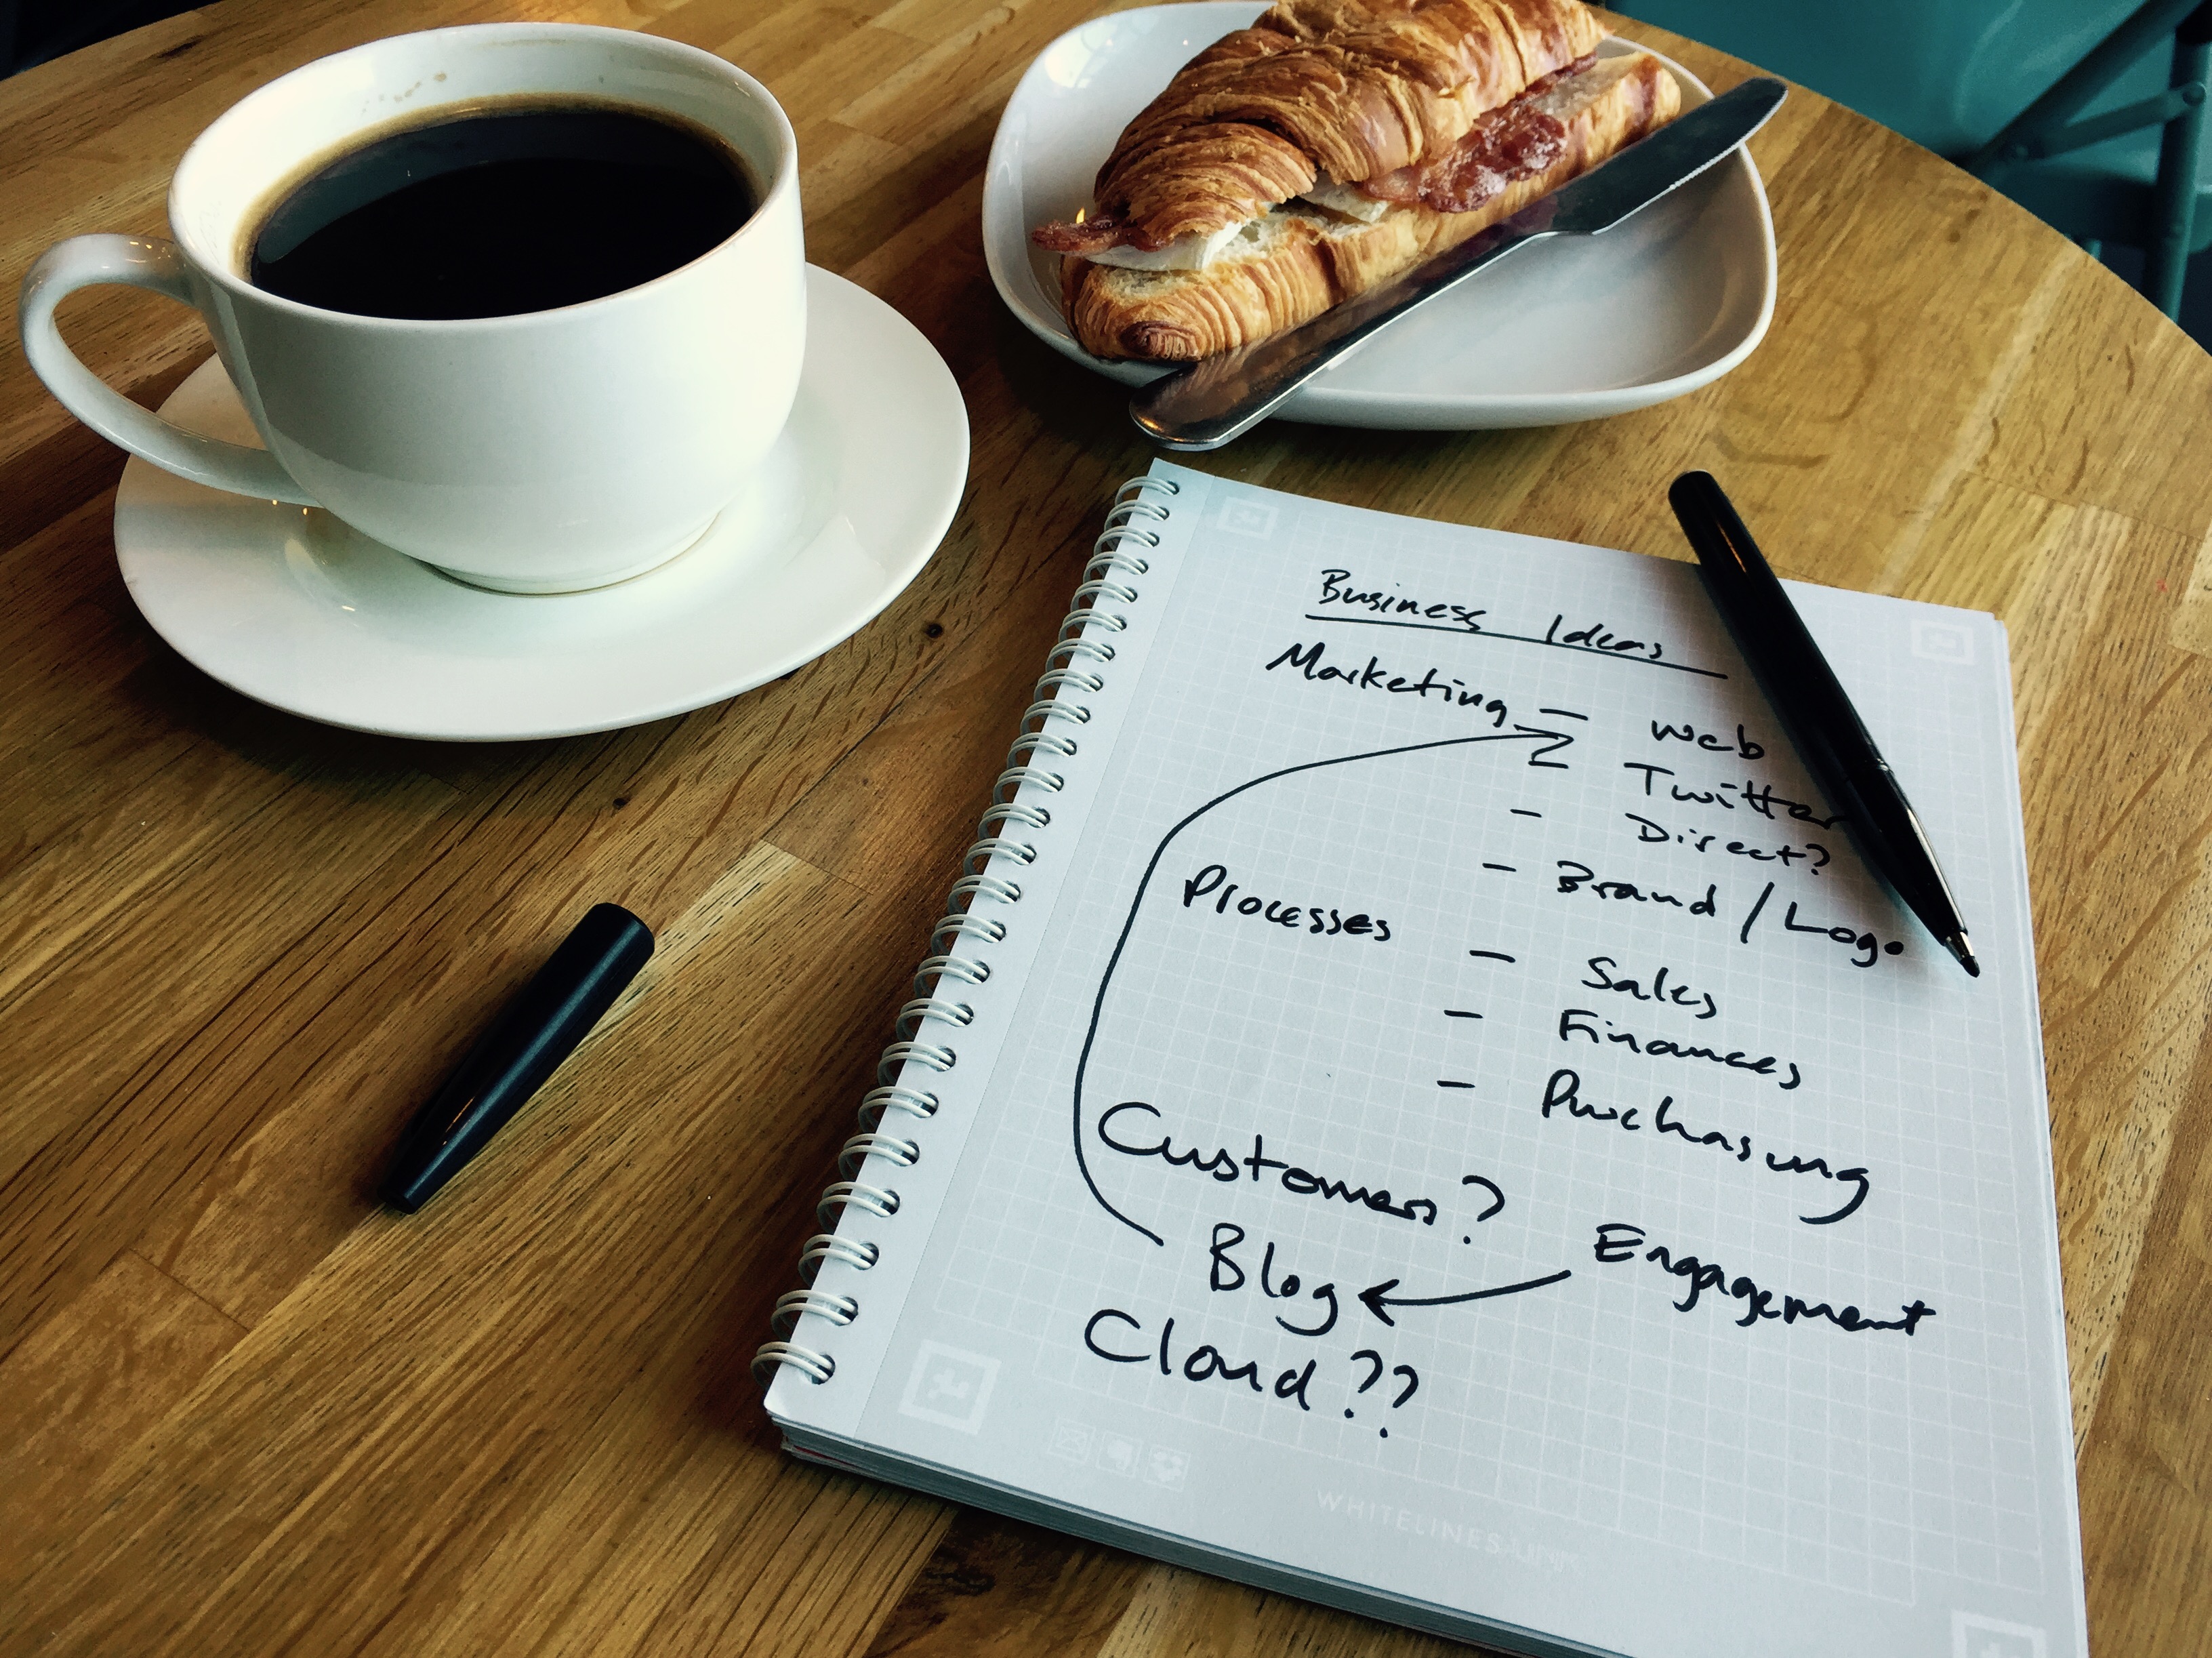 Business Ideas
Marketing - Web
- Twitter
- Direct?
- Brand / Logo
Processes
- Sales
- Finances
- Purchasing
Customers?
Engagement
Blog
Cloud??
WHITELINES LINK